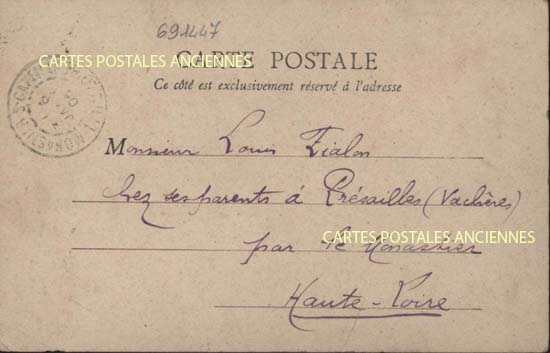 691447
CARTES POSTALES ANCIENNES
CARTE POSTALE
Ce côté est exclusivement réservé à l'adresse
Monsieur Louis Fialon
chez ses parents à Présailles (Vachères)
CARTES POSTALES ANCIENNES
par le Monastier
Haute-Loire